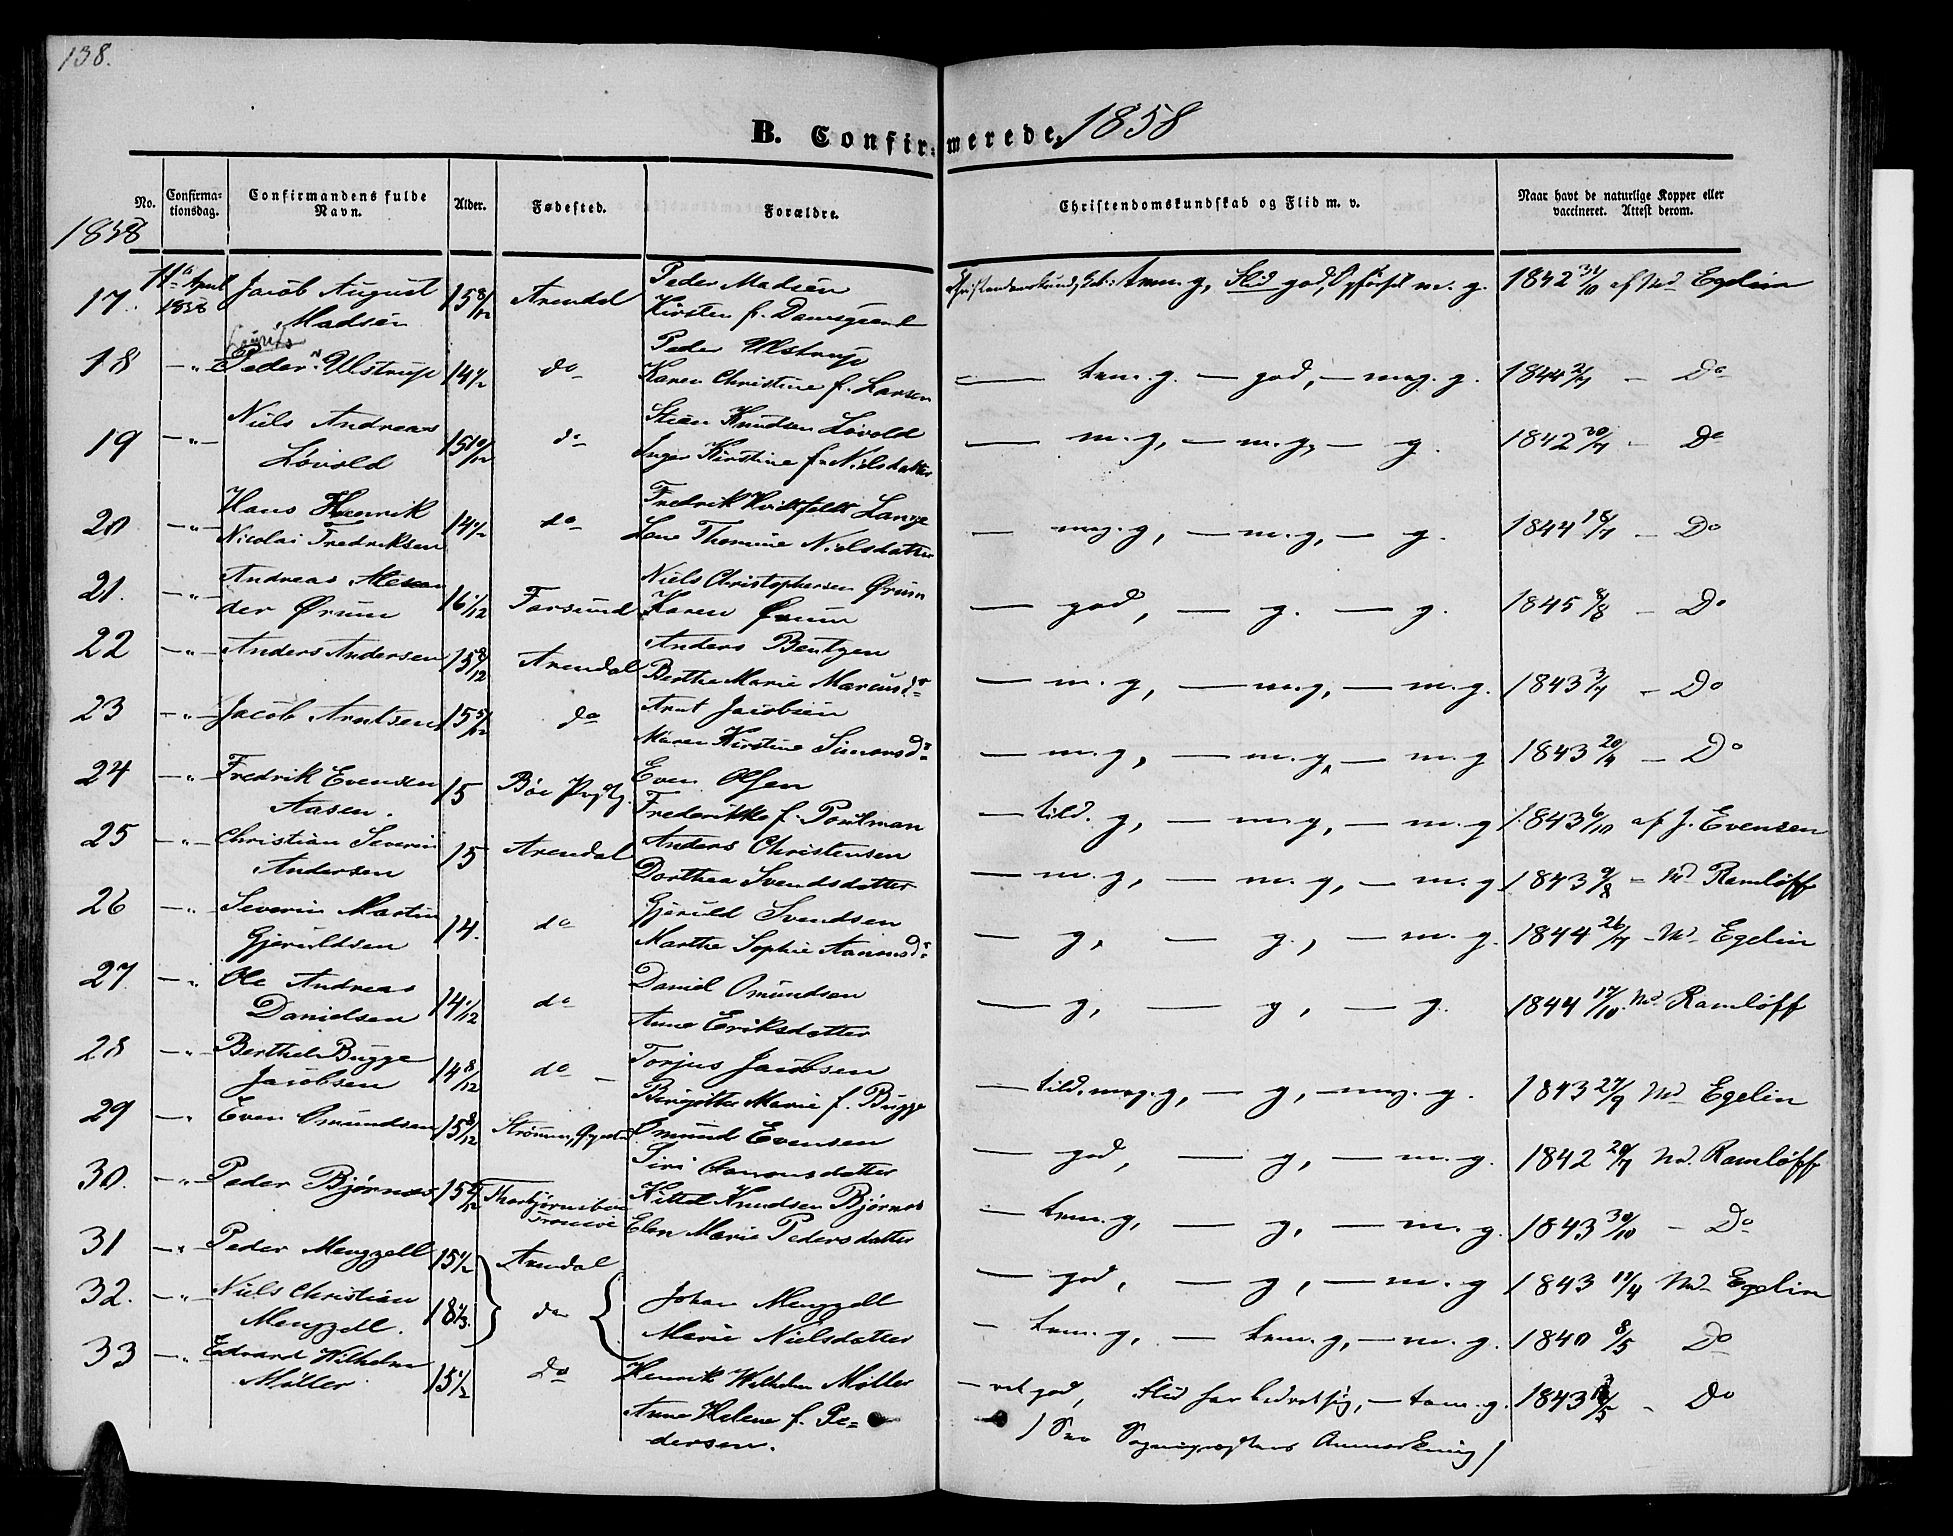 138.
B. Confirmerede, 1858
No.
Confirmationsdag.
Confirmandens fulde Navn.
Alder.
Fødested.
Forældre.
Christendomskundskab og Flid m. v.
Naar havt de naturlige Kopper eller vaccineret. Attest derom.
1858
17. 11te April 1858 Jacob August Madsen 15 8/12 Arendal Peder Madsen Kirsten f. Damsgaard tem. g, Flid god, Opførsel m. g. 1842 31/10 af Md Egelin
18 -"- Peder Ulstrup 14 1/2 do Peder Ulstrup Karen Christine f. Larsen — tem. g. — god, — meg. g. 1844 — Do
19 -"- Niels Andreas Løvold 15 10/12 do Steen Knudsen Løvold Inger Kirstine f. Nielsdatter — m. g, — m. g, — g. 1842 — Do
20 -"- Hans Henrik Nicolai Fredriksen 14 1/2 do Fredrik Lange Lene Thomine Nielsdatter — meg. g, — m. g, — g. 1844 — Do
21. -"- Andreas Alexander Ørum 16 1/12 Farsund Niels Christophersen Ørum Karen Ørum — god, — g. — g. 1845 8/8 — Do
22 -"- Anders Andersen 15 8/12 Arendal Anders Bentzen Berthe Marie Marcusdr — m. g, — m. g, — m. g. 1843 3/7 — Do
23 -"- Jacob Arntsen 15 5/12 do Arnt Jacobsen Maren Kirstine Simonsdr — m. g, — m. g, — m. g 1843 — Do
24 -"- Fredrik Evensen Aasen. 15 Even Olsen Frederikke f. Poulman — tild. g, — m. g, — m. g 1843 6/10 af J. Evensen
25 -"- Christian Severin Andersen 15 Arendal Anders Christensen Dorthea Svendsdatter — m. g, — m. g, — m. g 1843 9/8 — Md Ramløff
26 -"- Severin Martin Gjeruldsen 14. do Gjeruld Svendsen Marthe Sophie Aanonsdr — g, — g., — m. g. 1844 26/7 — Md Egelin
27. -"- Ole Andreas Danielsen 14 1/12 do Daniel Omundsen Anne Eriksdatter — g, — g, — g. 1844 17/10 Md. Ramløff
28 -"- Berthel Bugge Jacobsen 14 8/12 do Torjus Jacobsen Birgitte Marie f. Bugge — tild. meg. g, — g, — meg. g. 1843 27/9 Md Egelin
29 -" Even Omundsen 15 8/12 Omund Evensen Siri Aanonsdatter — god, — g, — m. g. 1842 Md. Ramløff
30. -"- Peder Bjørnes Kittel Knudsen Bjørnes Elen Marie Pedersdatter — tem. g, — g, — m. g. 1843 30/10 — Do
31 -"- Peder Mengzell 15 1/2 Arendal — god, — g, — m. g 1843 19/4 Md Egelin
32. -"- Niels Christian Mengzell. do Johan Mengzell Marie Nielsdatter — tem. g, — tem. g, — m. g 1840 8/5 Do
33 -"- Edvard Wilhelm Møller 15 1/2 Do Henrik Wilhelm Møller Anne Helene f. Pedersen. god, Flid har bedret sig, — tem. g. 1843 — Do
( See Sognepræstens Anmerkning )